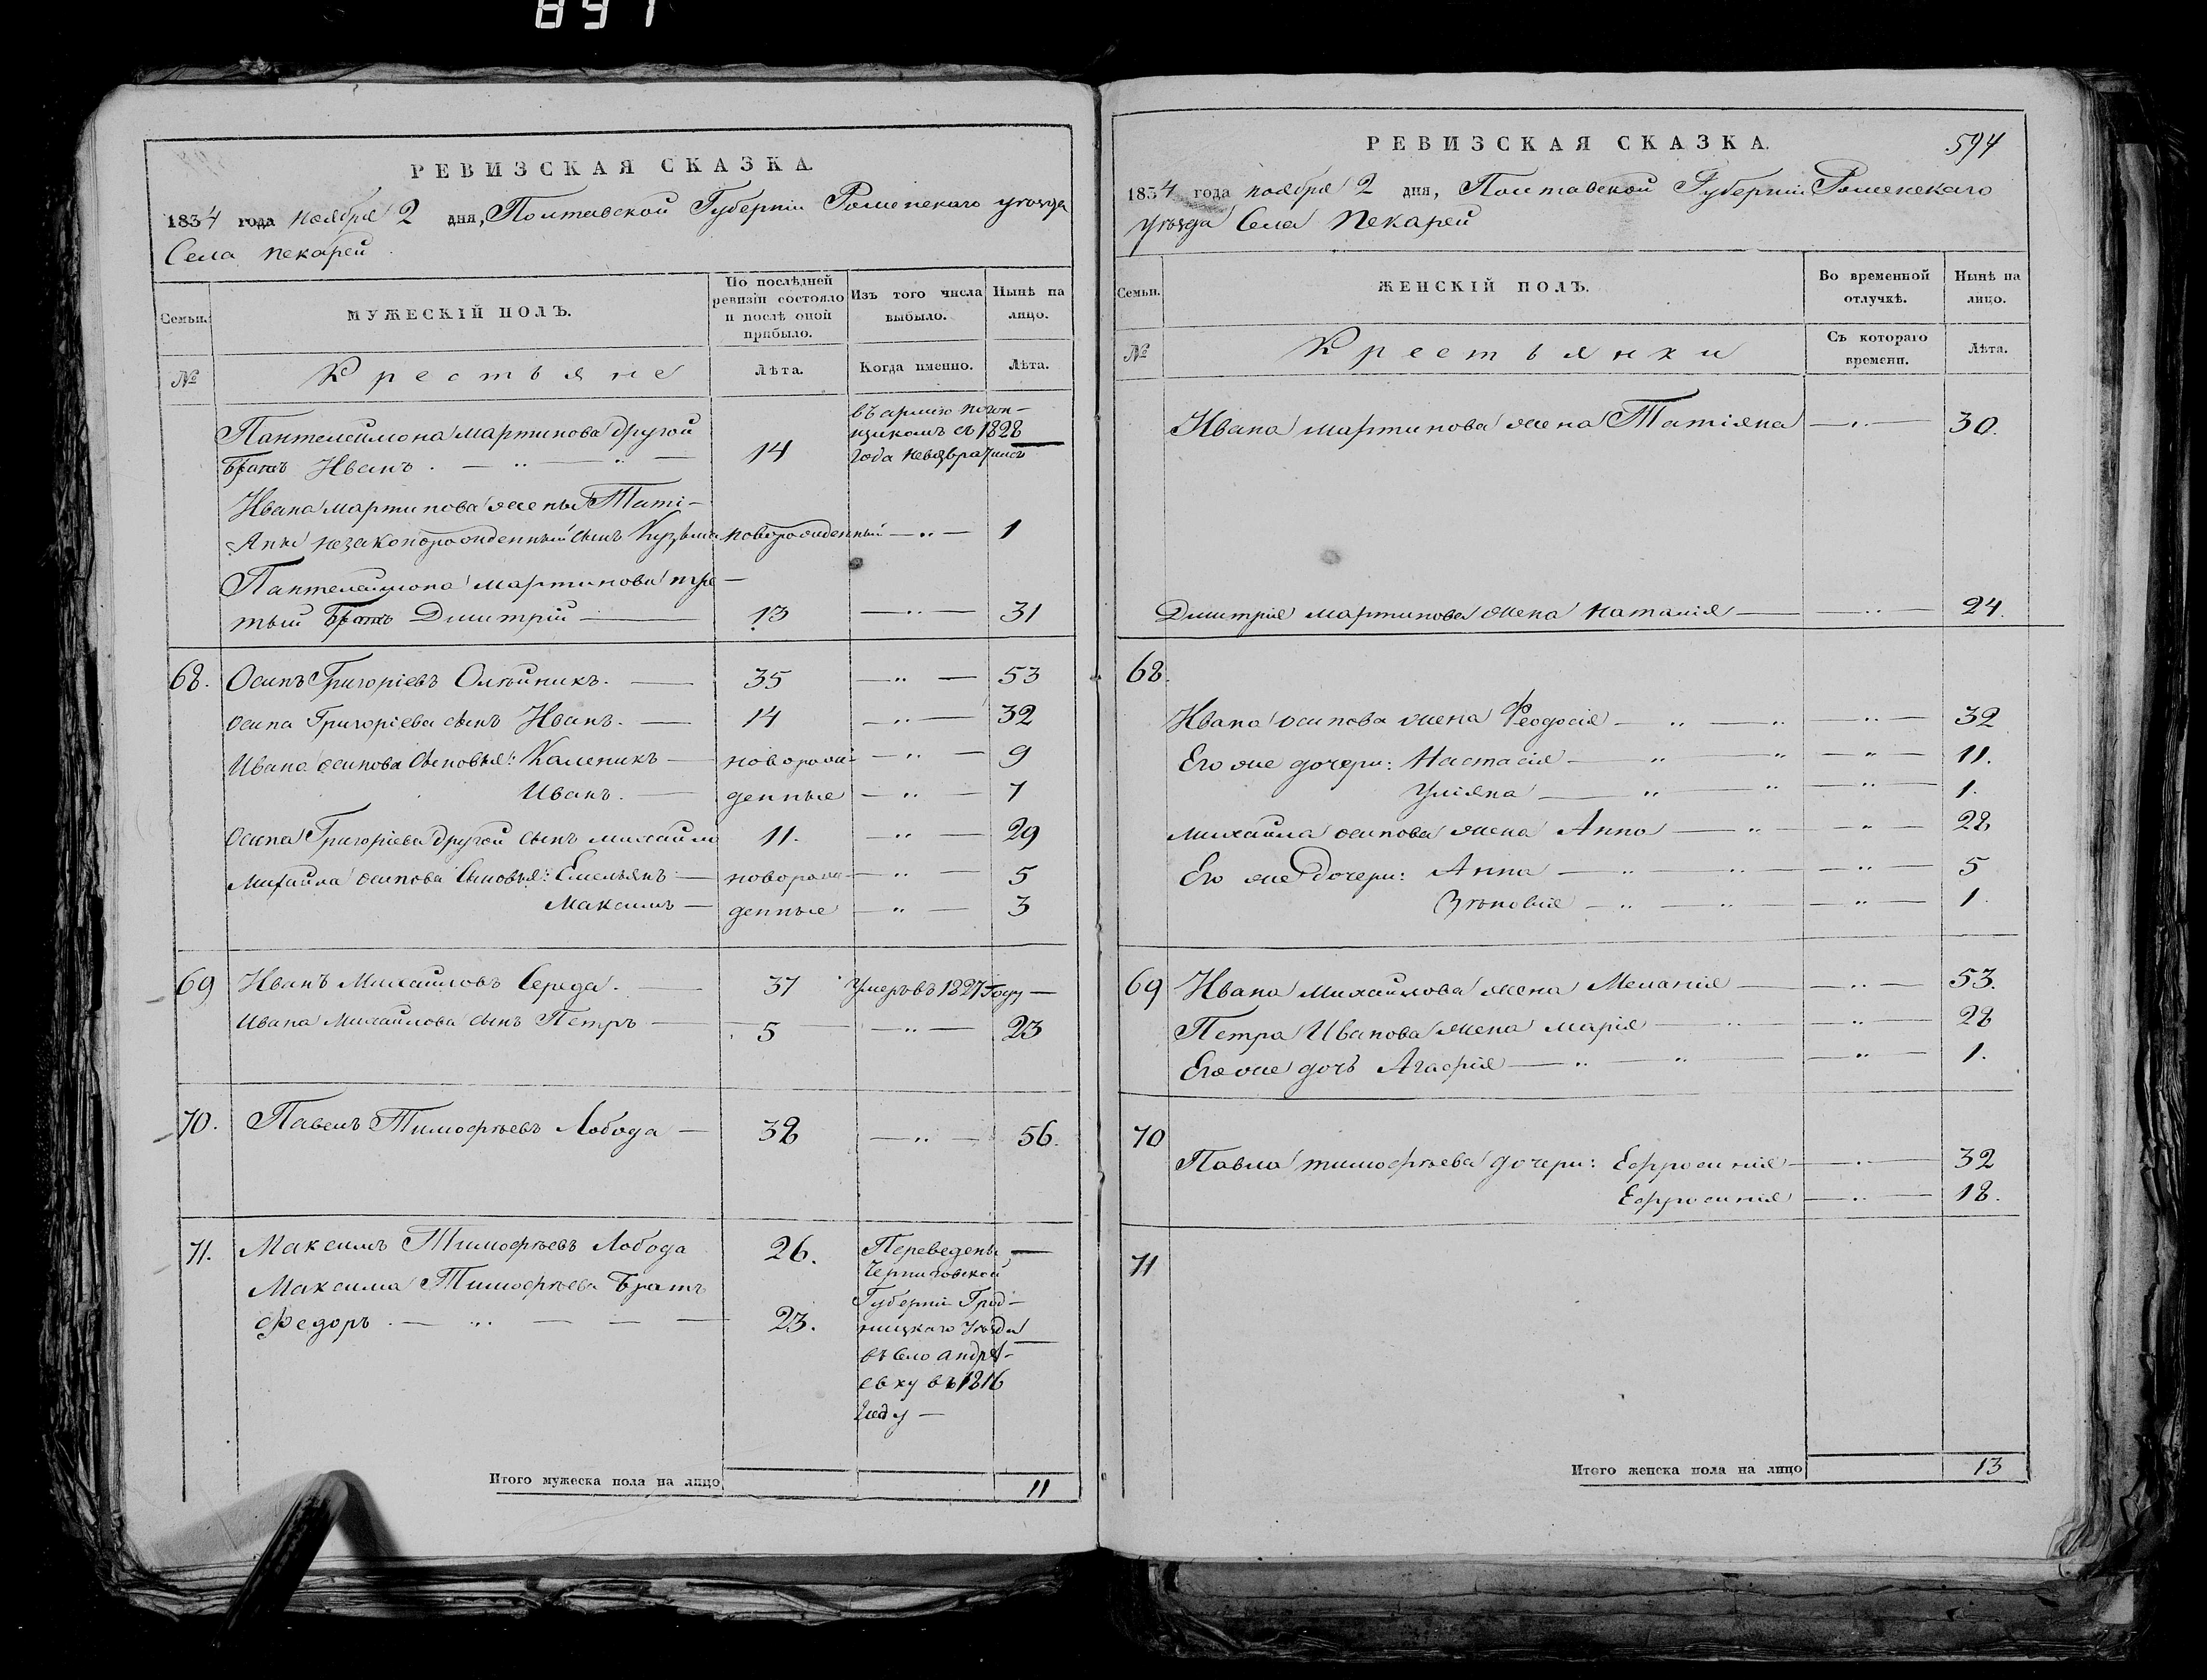 891
РЕВИЗСКАЯ СКАЗКА.
1834 года Ноября 2 дня, Полтавской Губерніи Роменскаго уѣзда
Села Пекарей
Семьи.
МУЖЕСКІЙ ПОЛЪ.
По послѣдней ревизіи состояло и послѣ оной прибыло.
Изъ того числа выбыло.
Нынѣ на лицо.
№
Крестьяне
Лѣта.
Когда именно.
Лѣта.
Пантелеимона Мартинова другой
братъ Иванъ. — 14 въ армію погон-
щикомъ съ 1828
года невозвратился
Ивана Мартинова жены Таті-
яны незаконорожденный сынъ Кузьма новорожденный — 1
Пантелеимона Мартинова тре-
тый братъ Дмитрій — 13 — 31
68. Осипъ Григоріевъ Олѣйникъ. — 35 — 53
Осипа Григоріева сынъ Иванъ. — 14 — 32
Ивана Осипова сыновья: Каленикъ — новорож- — 9
Иванъ. — денные — 7
Осипа Григоріева другой сынъ Михайло 11. — 29
Михайла Осипова сыновья: Емельянъ — новорож- — 5
Максимъ — денные — 3
69 Иванъ Михайловъ Середа. — 37 Умеръ въ 1827 году —
Ивана Михайлова сынъ Петръ — 5 — 23
70. Павелъ Тимофѣевъ Лобода — 38 — 56.
71. Максимъ Тимофѣевъ Лобода 26. Переведены —
Максима Тимофѣева братъ
Федоръ. — 23.
Черниговской
ГуберніиГрад-
ницкаго уѣзда
въ село Андре-
евку въ 1816
году —
Итого мужеска пола на лицо 11
РЕВИЗСКАЯ СКАЗКА. 594
1834 года Ноября 2 дня, Полтавской Губерніи Роменскаго
уѣзда Села Пекарей
Семьи.
ЖЕНСКІЙ ПОЛЪ.
Во временной отлучкѣ.
Нынѣ на лицо.
№
Крестьянки
Съ котораго времени.
Лѣта.
Ивана Мартинова жена Татіяна — 30.
Дмитрія Мартинова жена Наталія — 24.
68.
Ивана Осипова жена Феодосія — 32
Его же дочери: Настасія — 11.
Уліяна — 1.
Михайла Осипова жена Анна — 28
Его же дочери: Анна — 5
Зѣновія — 1.
69 Ивана Михайлова жена Меланія — 53.
Петра Иванова жена Марія — 28
Его же дочъ Агафія — 1.
70
Павла Тимофѣева дочери: Ефросинія — 32
Ефросинія — 18.
71
Итого женска пола на лицо 13